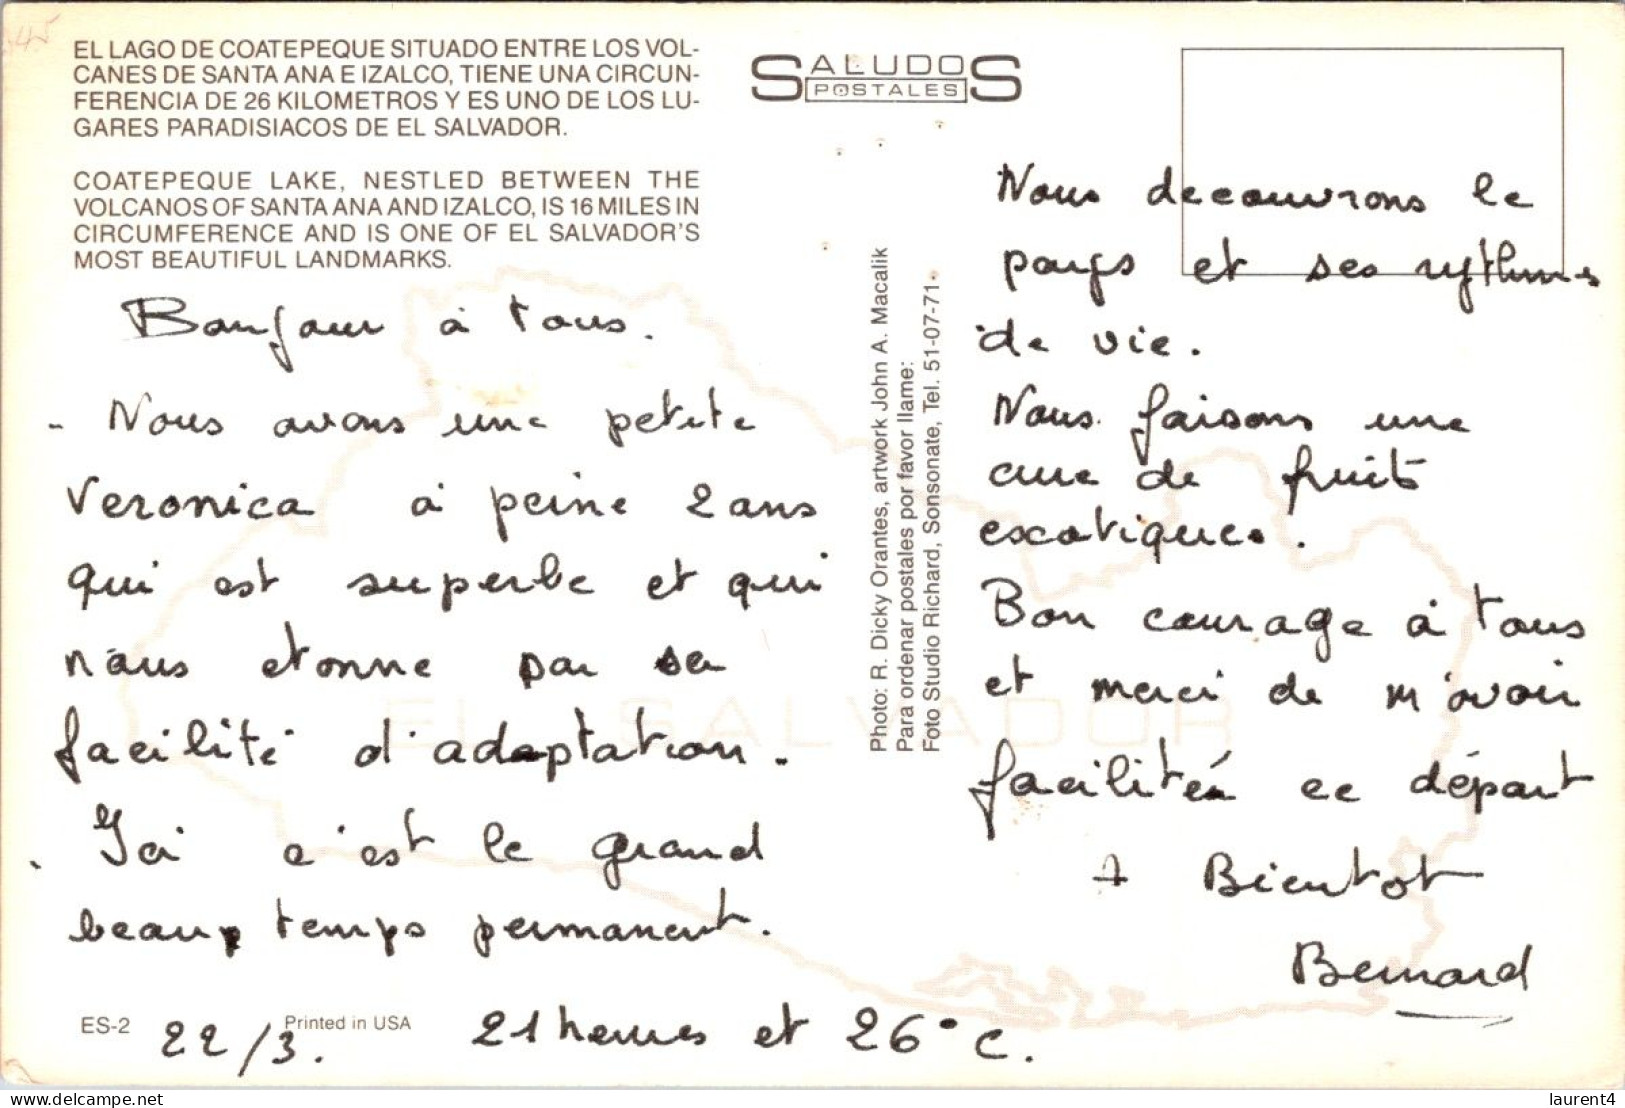 45
EL LAGO DE COATEPEQUE SITUADO ENTRE LOS VOL-
CANES DE SANTA ANA E IZALCO, TIENE UNA CIRCUN-
FERENCIA DE 26 KILOMETROS Y ES UNO DE LOS LU-
GARES PARADISIACOS DE EL SALVADOR.
COATEPEQUE LAKE, NESTLED BETWEEN THE
VOLCANOS OF SANTA ANA AND IZALCO, IS 16 MILES IN
CIRCUMFERENCE AND IS ONE OF EL SALVADOR'S
MOST BEAUTIFUL LANDMARKS.
SALUDOS
POSTALES
Bonjour à tous.
- Nous avons une petite
Veronica à peine 2 ans
qui est superbe et qui
nous etonne par sa
facilité d'adaptation.
. Ici c'est le grand
beau temps permanent.
22/3. 21 heures et 26°C.
ES-2
Printed in USA
Photo: R. Dicky Orantes, artwork John A. Macalik
Para ordenar postales por favor llame:
Foto Studio Richard, Sonsonate, Tel. 51-07-71
EL SALVADOR
Nous decouvrons le
pays et ses rythmes
de vie.
Nous faisons une
cure de fruits
exotiques.
Bon courage à tous
et merci de m'avoir
facilité ce départ
A Bientot
Bernard
delcampe.net
laurent4